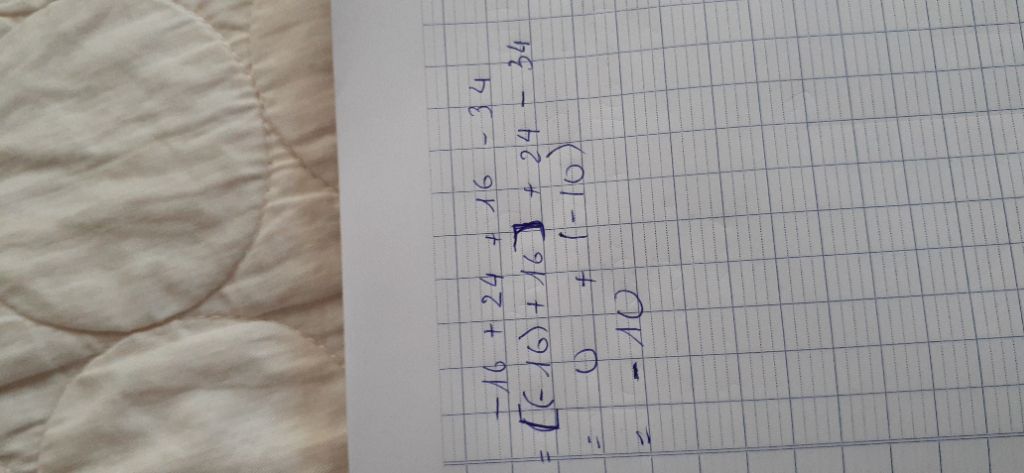 -16 + 24 + 16 - 34
= [(-16) + 16] + 24 - 34
= 0 + (-10)
= -10